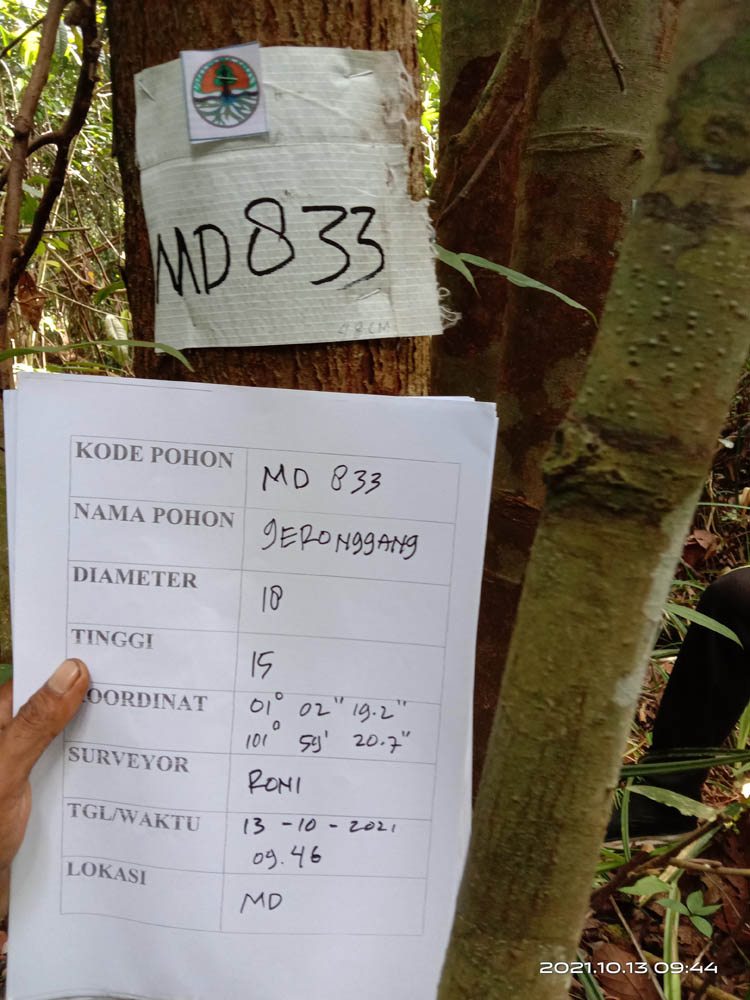 MD 833
48 CM
KODE POHON MD 833
NAMA POHON gERONggANg
DIAMETER 18
TINGGI 15
KOORDINAT 01° 02" 19.2"
101° 59' 20.7"
SURVEYOR RONI
TGL/WAKTU 13 - 10 - 2021
09.46
LOKASI MD
2021.10.13 09:44